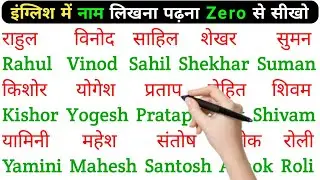 इंग्लिश में नाम लिखना पढ़ना Zero से सीखो
राहुल विनोद साहिल शेखर सुमन
Rahul Vinod Sahil Shekhar Suman
किशोर योगेश प्रताप शिवम
Kishor Yogesh Pratap Shivam
यामिनी महेश संतोष रोली
Yamini Mahesh Santosh Roli